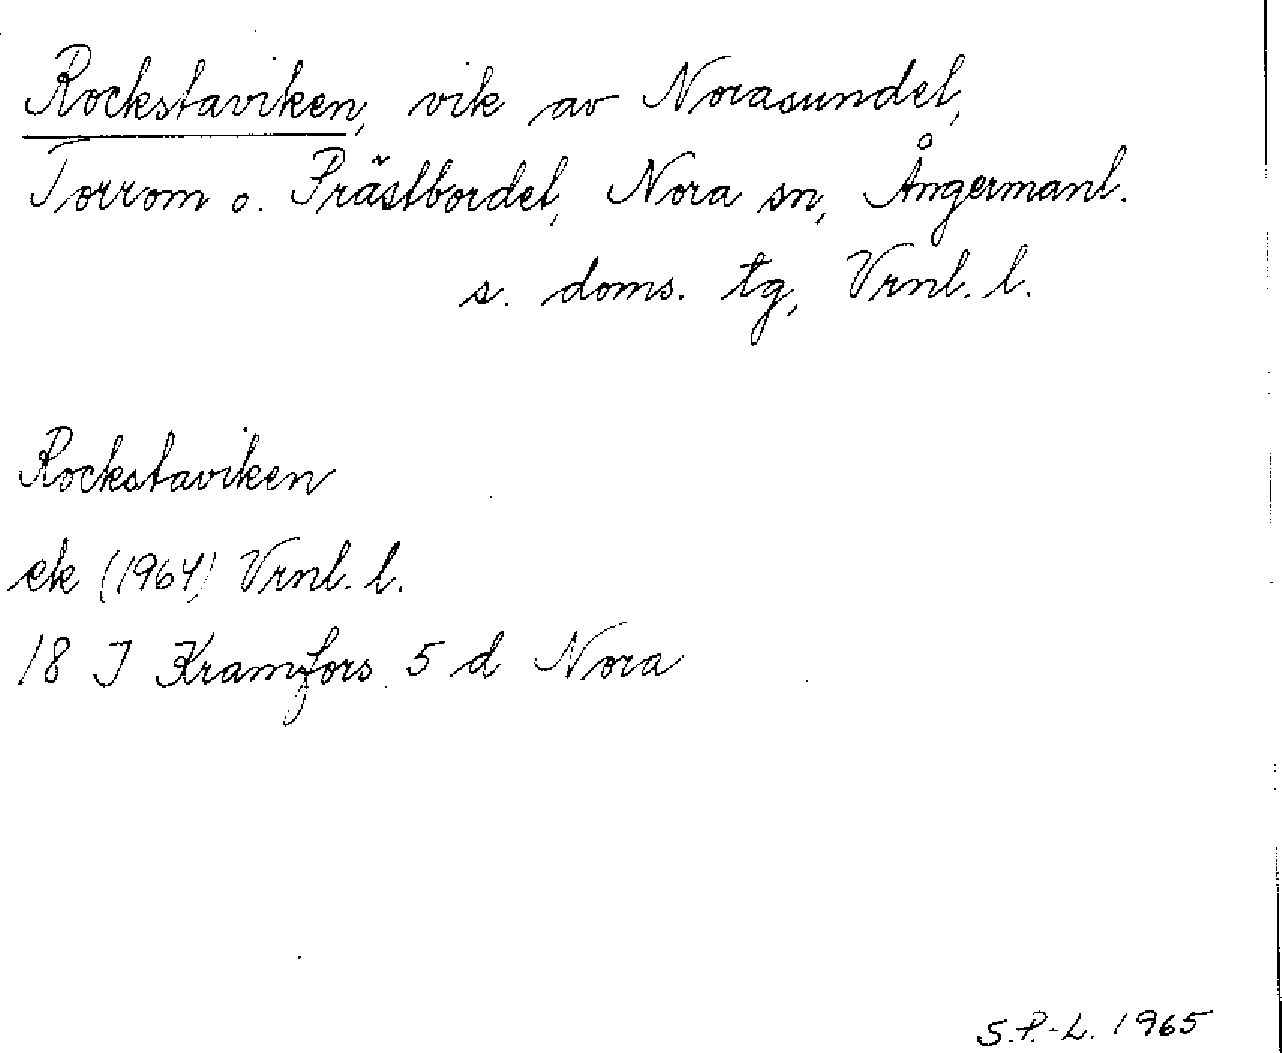 Rockstaviken, vik av Norasundet,
Torrom o. Prästbordet, Nora sn, Ångermanl.
s. doms. tg, Vrnl. l.
Rockstaviken
ek (1964) Vrnl. l.
18 J Kramfors 5 d Nora
S.P.-L. 1965